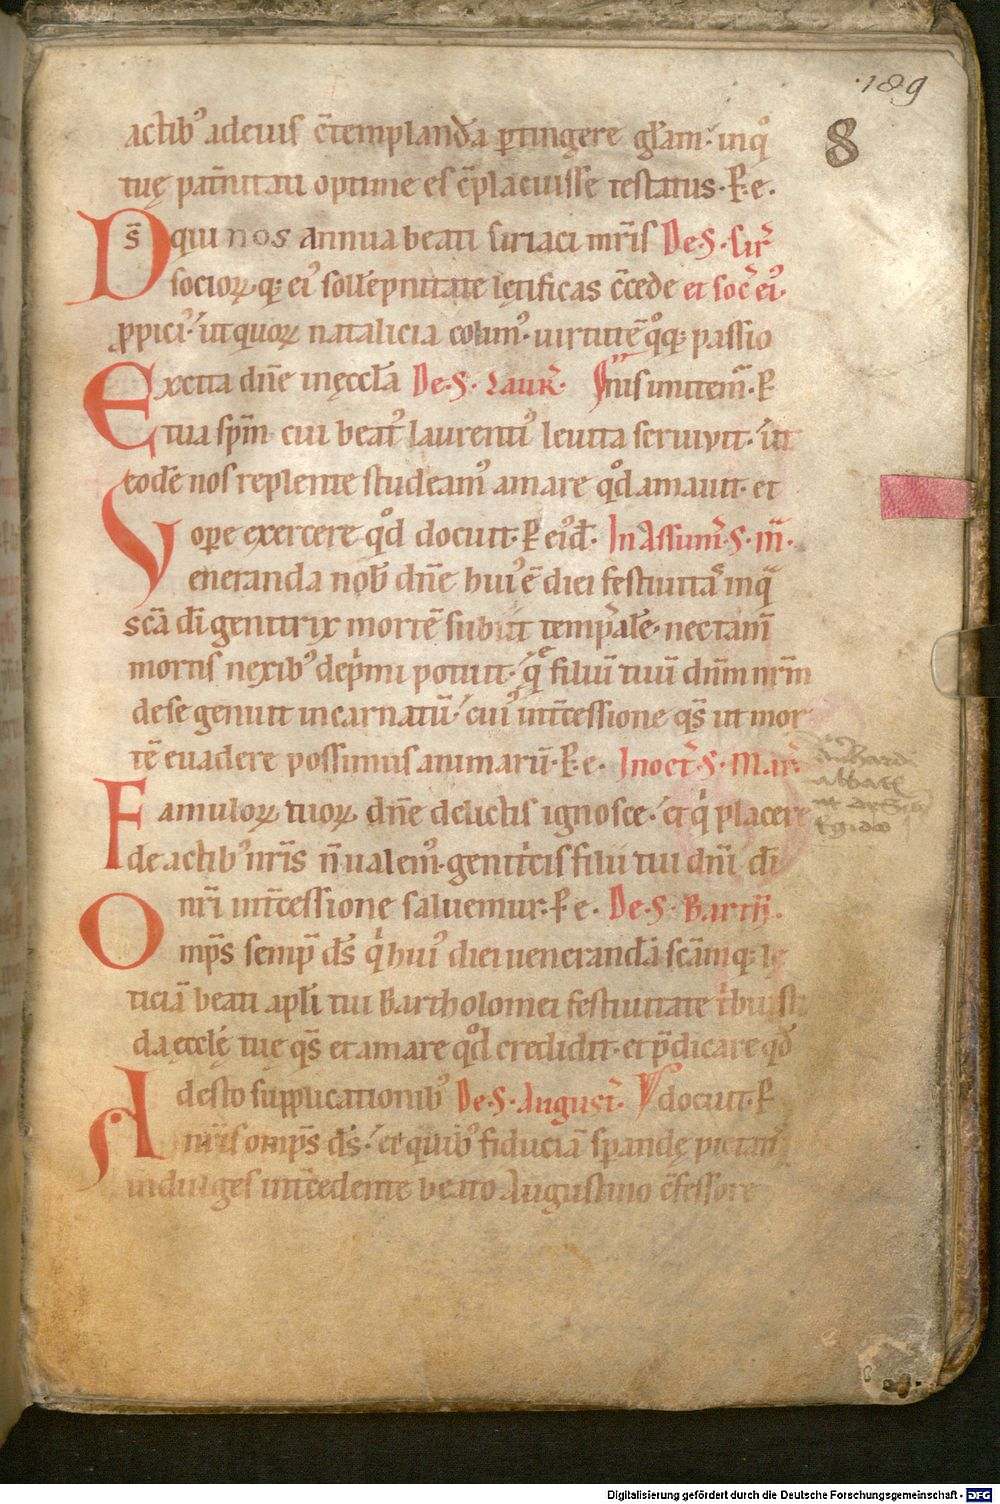 ·189
8
actib᷒ adeuis c̄templanda ꝑtingere gl̄am· inq̊
tuę pat̄nitati optime es c̄placuisse testatus· P̱ e·
Ds̄ qui nos annua beati siriaci mr̄is De·S· Sir̄
socioꝝ q; ei᷒ soll'epnitate lętificas c̄cede et soc̄ ei᷒·
ꝓpici᷒· ut quoꝝ natalicia colim᷒· uirtutē q̊q; passio
Excita dn̄e inęccl̄a De·S· Laur̄· nis imitem̄· P̱
tua sp̄m cui beat᷒ laurenti᷒ leuita seruiuit· ut
eodē nos replente studeam᷒ amare qd̊ amauit· et
Vope exercere qd̊ docuit· P̱ ei᷒d̄· In Assum̄·S·M̄·
eneranda nob̄ dn̄e hui᷒ ē diei festiuitas inq̄
scā dī genitrix mortē subiit temꝑalē· nec tam̄
mortis nexib᷒ dep̄mi potuit· q̄ filiū tuū dn̄m nr̄m
de se genuit incarnatū· cui᷒ int̄cessione qs̄ ut mor
tē euadere possimus animarū· P̱ e· In oct̄·S·Mar̄·
Famuloꝝ tuoꝝ dn̄e delictis ignosce· et q̄ placere
de actib᷒ nr̄is n̄ ualem᷒· genit̄cis filii tui dn̄i dī
nr̄i int̄cessione saluemur· P̱ e· De·S·Barth̄·
Omps̄ semp̄ ds̄ q̄ hui᷒ diei uenerandā scāmq; lę
ticiā beati apl̄i tui Bartholomei festiuitate t̄buisti
da ęccl̄ę tuę qs̄ et amare qd̊ credidit· et p̄dicare qd̊
Adesto supplicationib᷒ De·S·August̄· docuit· P̱
nr̄is omps̄ ds̄· et quib᷒ fiduciā sꝑandę pietat̄
indulges int̄cedente beato Augustino c̄fessore
abbate
Egidio
Digitalisierung gefördert durch die Deutsche Forschungsgemeinschaft - DFG